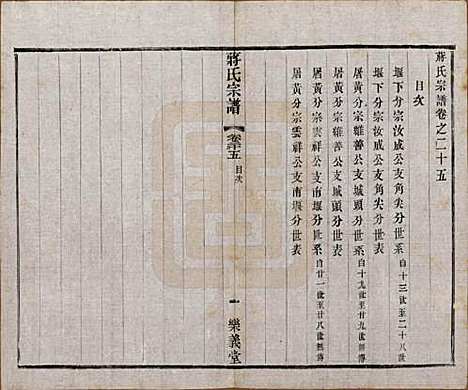 蔣氏宗譜卷之二十五
目次
堰下分宗汝成公支角尖分世系自十三世至二十八世
堰下分宗汝成公支角尖分世表
屠黃分宗維善公支城頭分世系自十九世至廿九世經傳
屠黃分宗維善公支城頭分世表
屠黃分宗雲祥公支南堰分世系自廿一世至廿八世經傳
屠黃分宗雲祥公支南堰分世表
蔣氏宗譜 卷二十五 目次 一 樂義堂